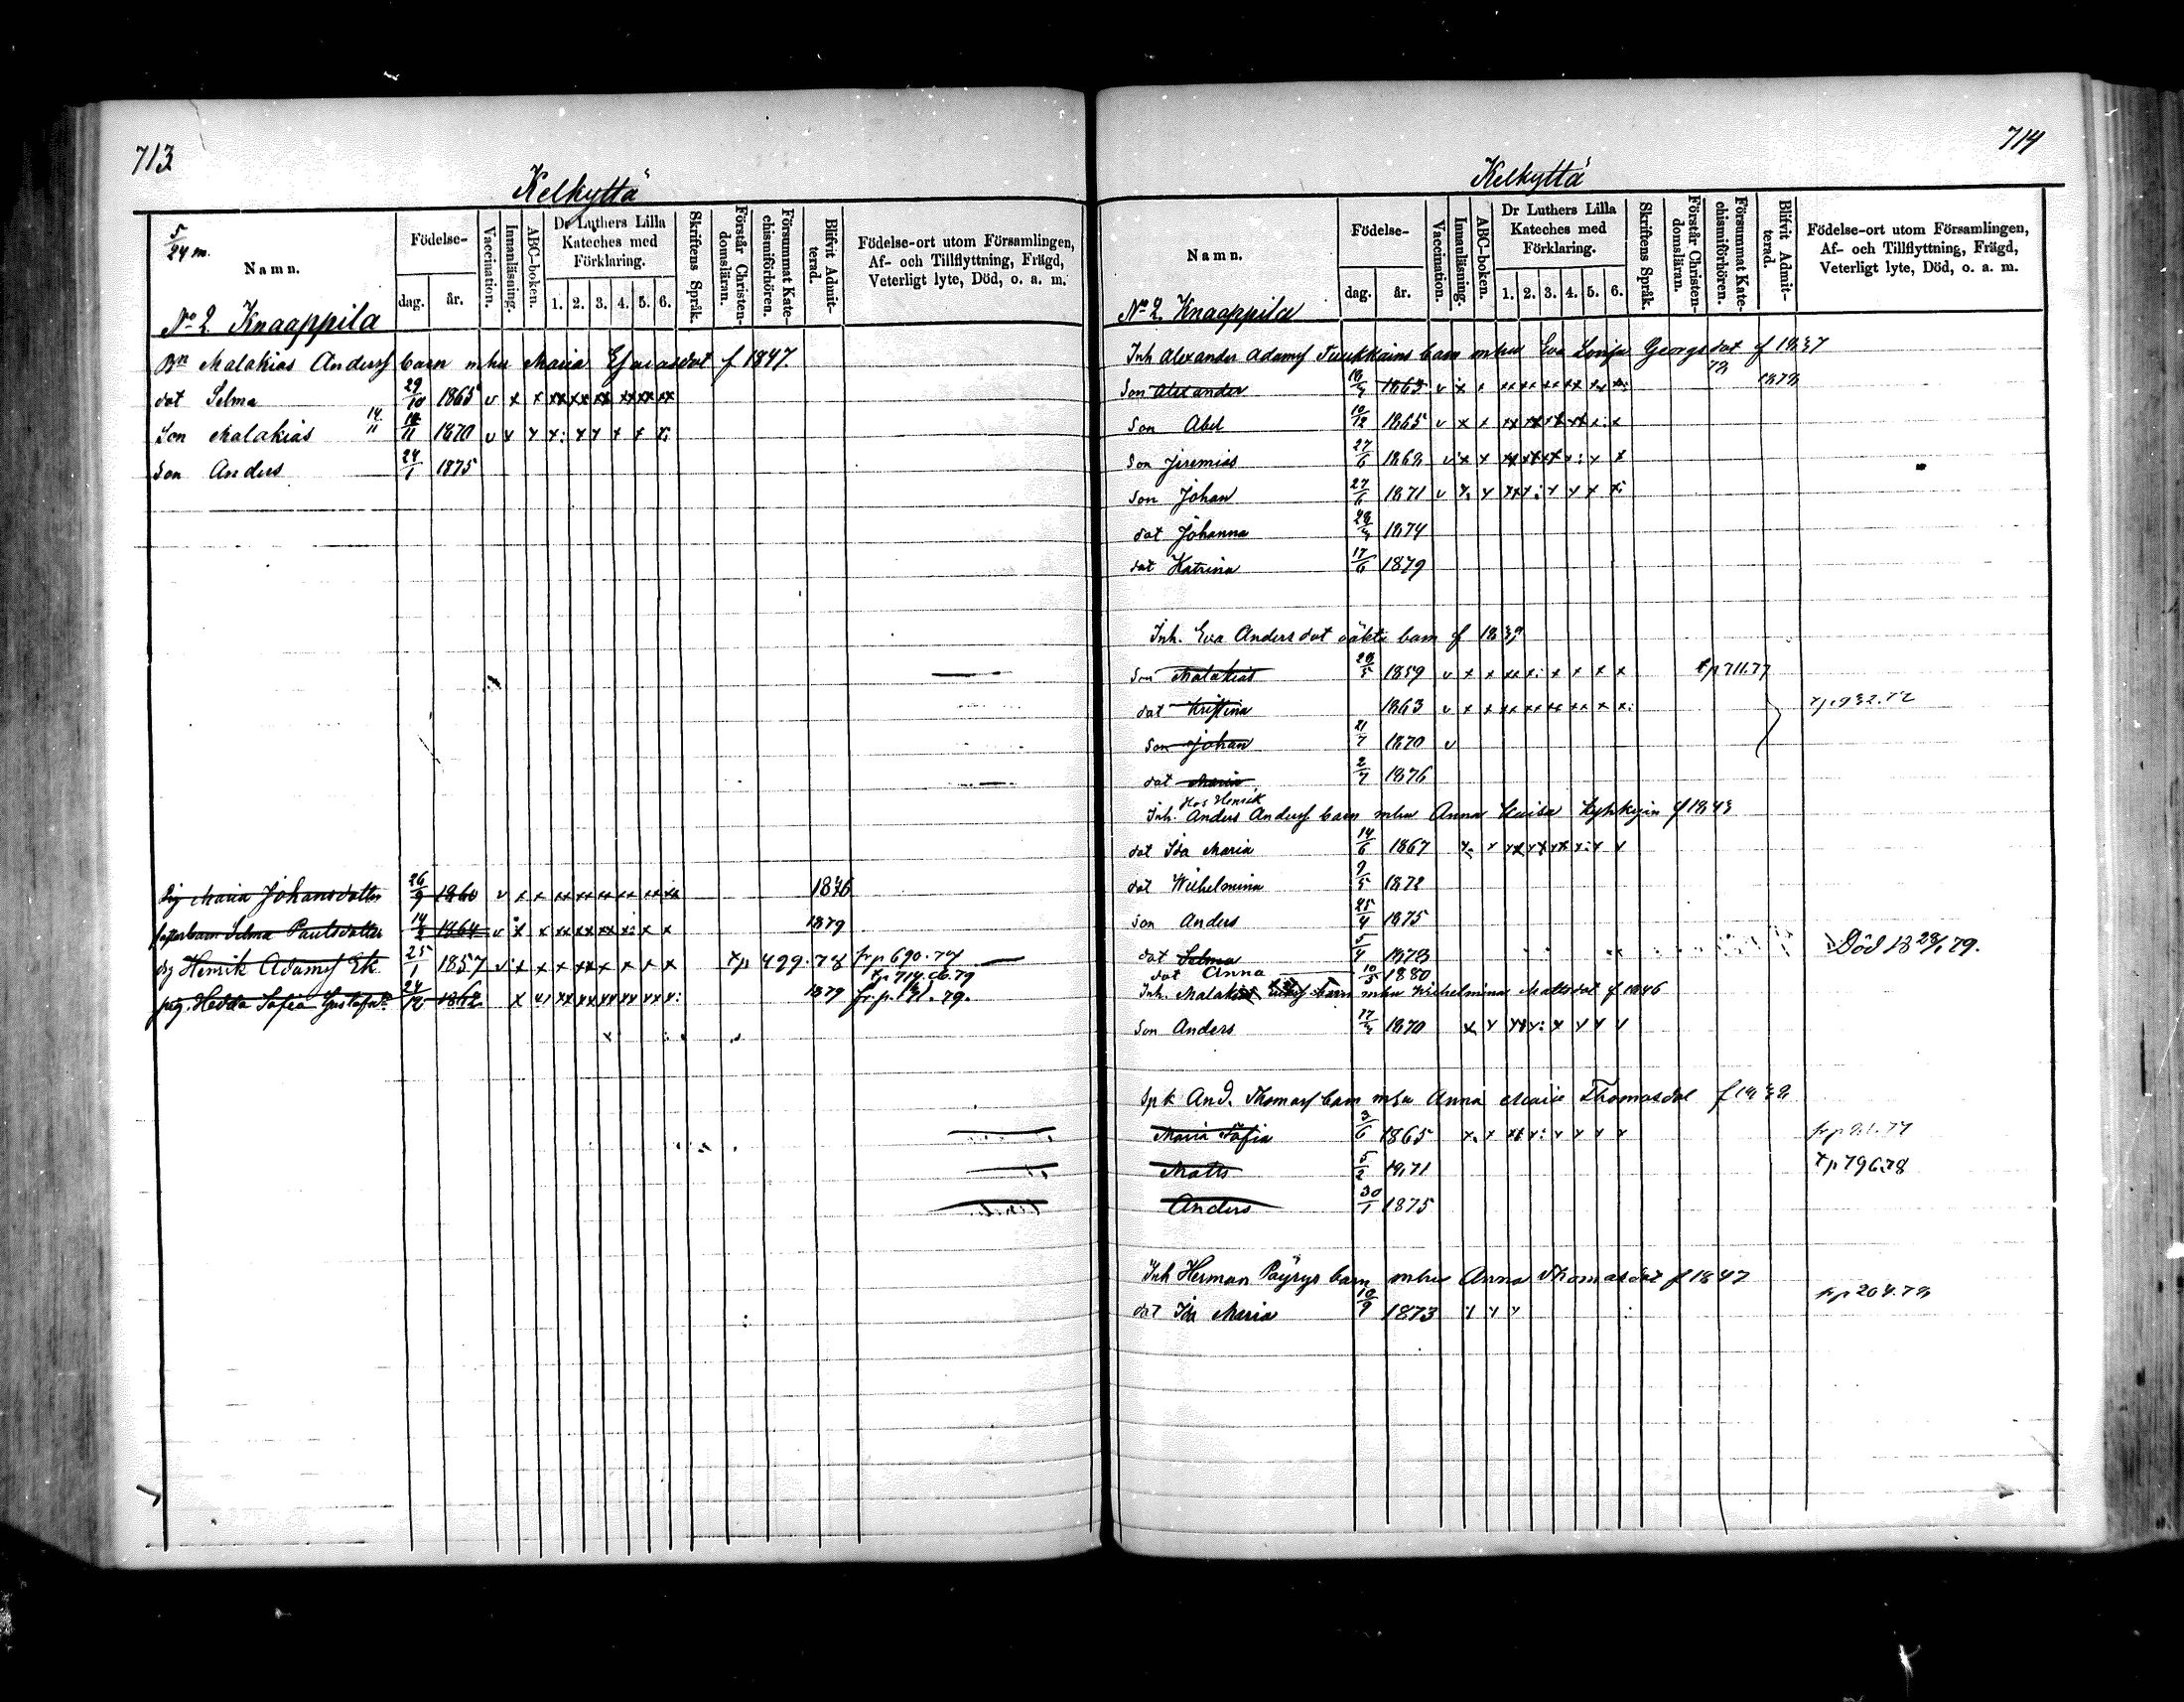 713
Kelkyttä
5/24 m.
Namn.
Födelse-
dag. år.
Vaccination.
Innanläsning.
ABC-boken.
Dr Luthers Lilla Kateches med Förklaring.
1. 2. 3. 4. 5. 6.
Skriftens Språk.
Förstår Christendomsläran.
Försummat Katechismiförhören.
Blifvit Admitterad.
Födelse-ort utom Församlingen, Af- och Tillflyttning, Frägd, Veterligt lyte, Död, o. a. m.
No 2. Knaappila
Malakias Anders barn mhu Maria Esaiasdot f 1847.
dot Selma 29/10 1865 v x x xx xx xx xx xx xx
Son Malakias 14/11 1870 v x x x: x x x x x:
Son Anders 24/1 1875
Maria Johansdotter 26/9 1860 v x x xx xx xx xx xx xx 1876
Selma Paulsdotter 1864 v x x xx xx xx x: x x 1879
dg Henrik Adams Ek 25/1 1857 v x x x xx x x x x tp 499.78 frp 690.78
tp 714.cb.79
pig. Hedda Sofia Gustafsdr 24/12 1862 1879 fr.p. 79.
714
Kelkyttä
Namn.
Födelse-
dag. år.
Vaccination.
Innanläsning.
ABC-boken.
Dr Luthers Lilla Kateches med Förklaring.
1. 2. 3. 4. 5. 6.
Skriftens Språk.
Förstår Christendomsläran.
Försummat Katechismiförhören.
Blifvit Admitterad.
Födelse-ort utom Församlingen, Af- och Tillflyttning, Frägd, Veterligt lyte, Död, o. a. m.
No 2. Knaappila
Inh Alexander Adams barn mhu Eva Lovisa Georgsdot f 1837
Son Alexander 1863 v x x xx xx xx xx xx 1878
Son Abel 10/12 1865 v x x xx xx xx xx x: x
Son Jeremias 27/6 1868 v x x xx xx xx x: x x
Son Johan 27/6 1871 v x: x xx x: x x x x:
dot Johanna 1874
dot Katrina 17/6 1879
Inh. Eva Andersdot oäkta barn f 1839
Son Malakias 1859 v x x xx x: x x x x tp 711.77
dot Kristina 1863 v x x xx xx xx xx x x:
Son Johan 21/7 1870 v
dot Maria 2/7 1876
Hos Henrik
Inh. Anders Anders barn mhu Anna Kaisa f 1843
dot Ida Maria 14/6 1867
dot Wilhelmina 9/5 1872
Son Anders 25/4 1875
dot Selma 5/4 1878 Död 79.
dot Anna 10/5 1880
Inh. barn mhu Wilhelmina Mattsdot f 1846
Son Anders 1870
Spk And. Thomas barn mhu Anna Maria Thomasdot
Maria Sofia 3/6 1865
Matts 5/2 1871 tp 796.78
Anders 30/1 1875
Inh Herman Päyrys barn mhu Anna Thomasdot f 1847
dot Ida Maria 10/9 1873 frp 204.78